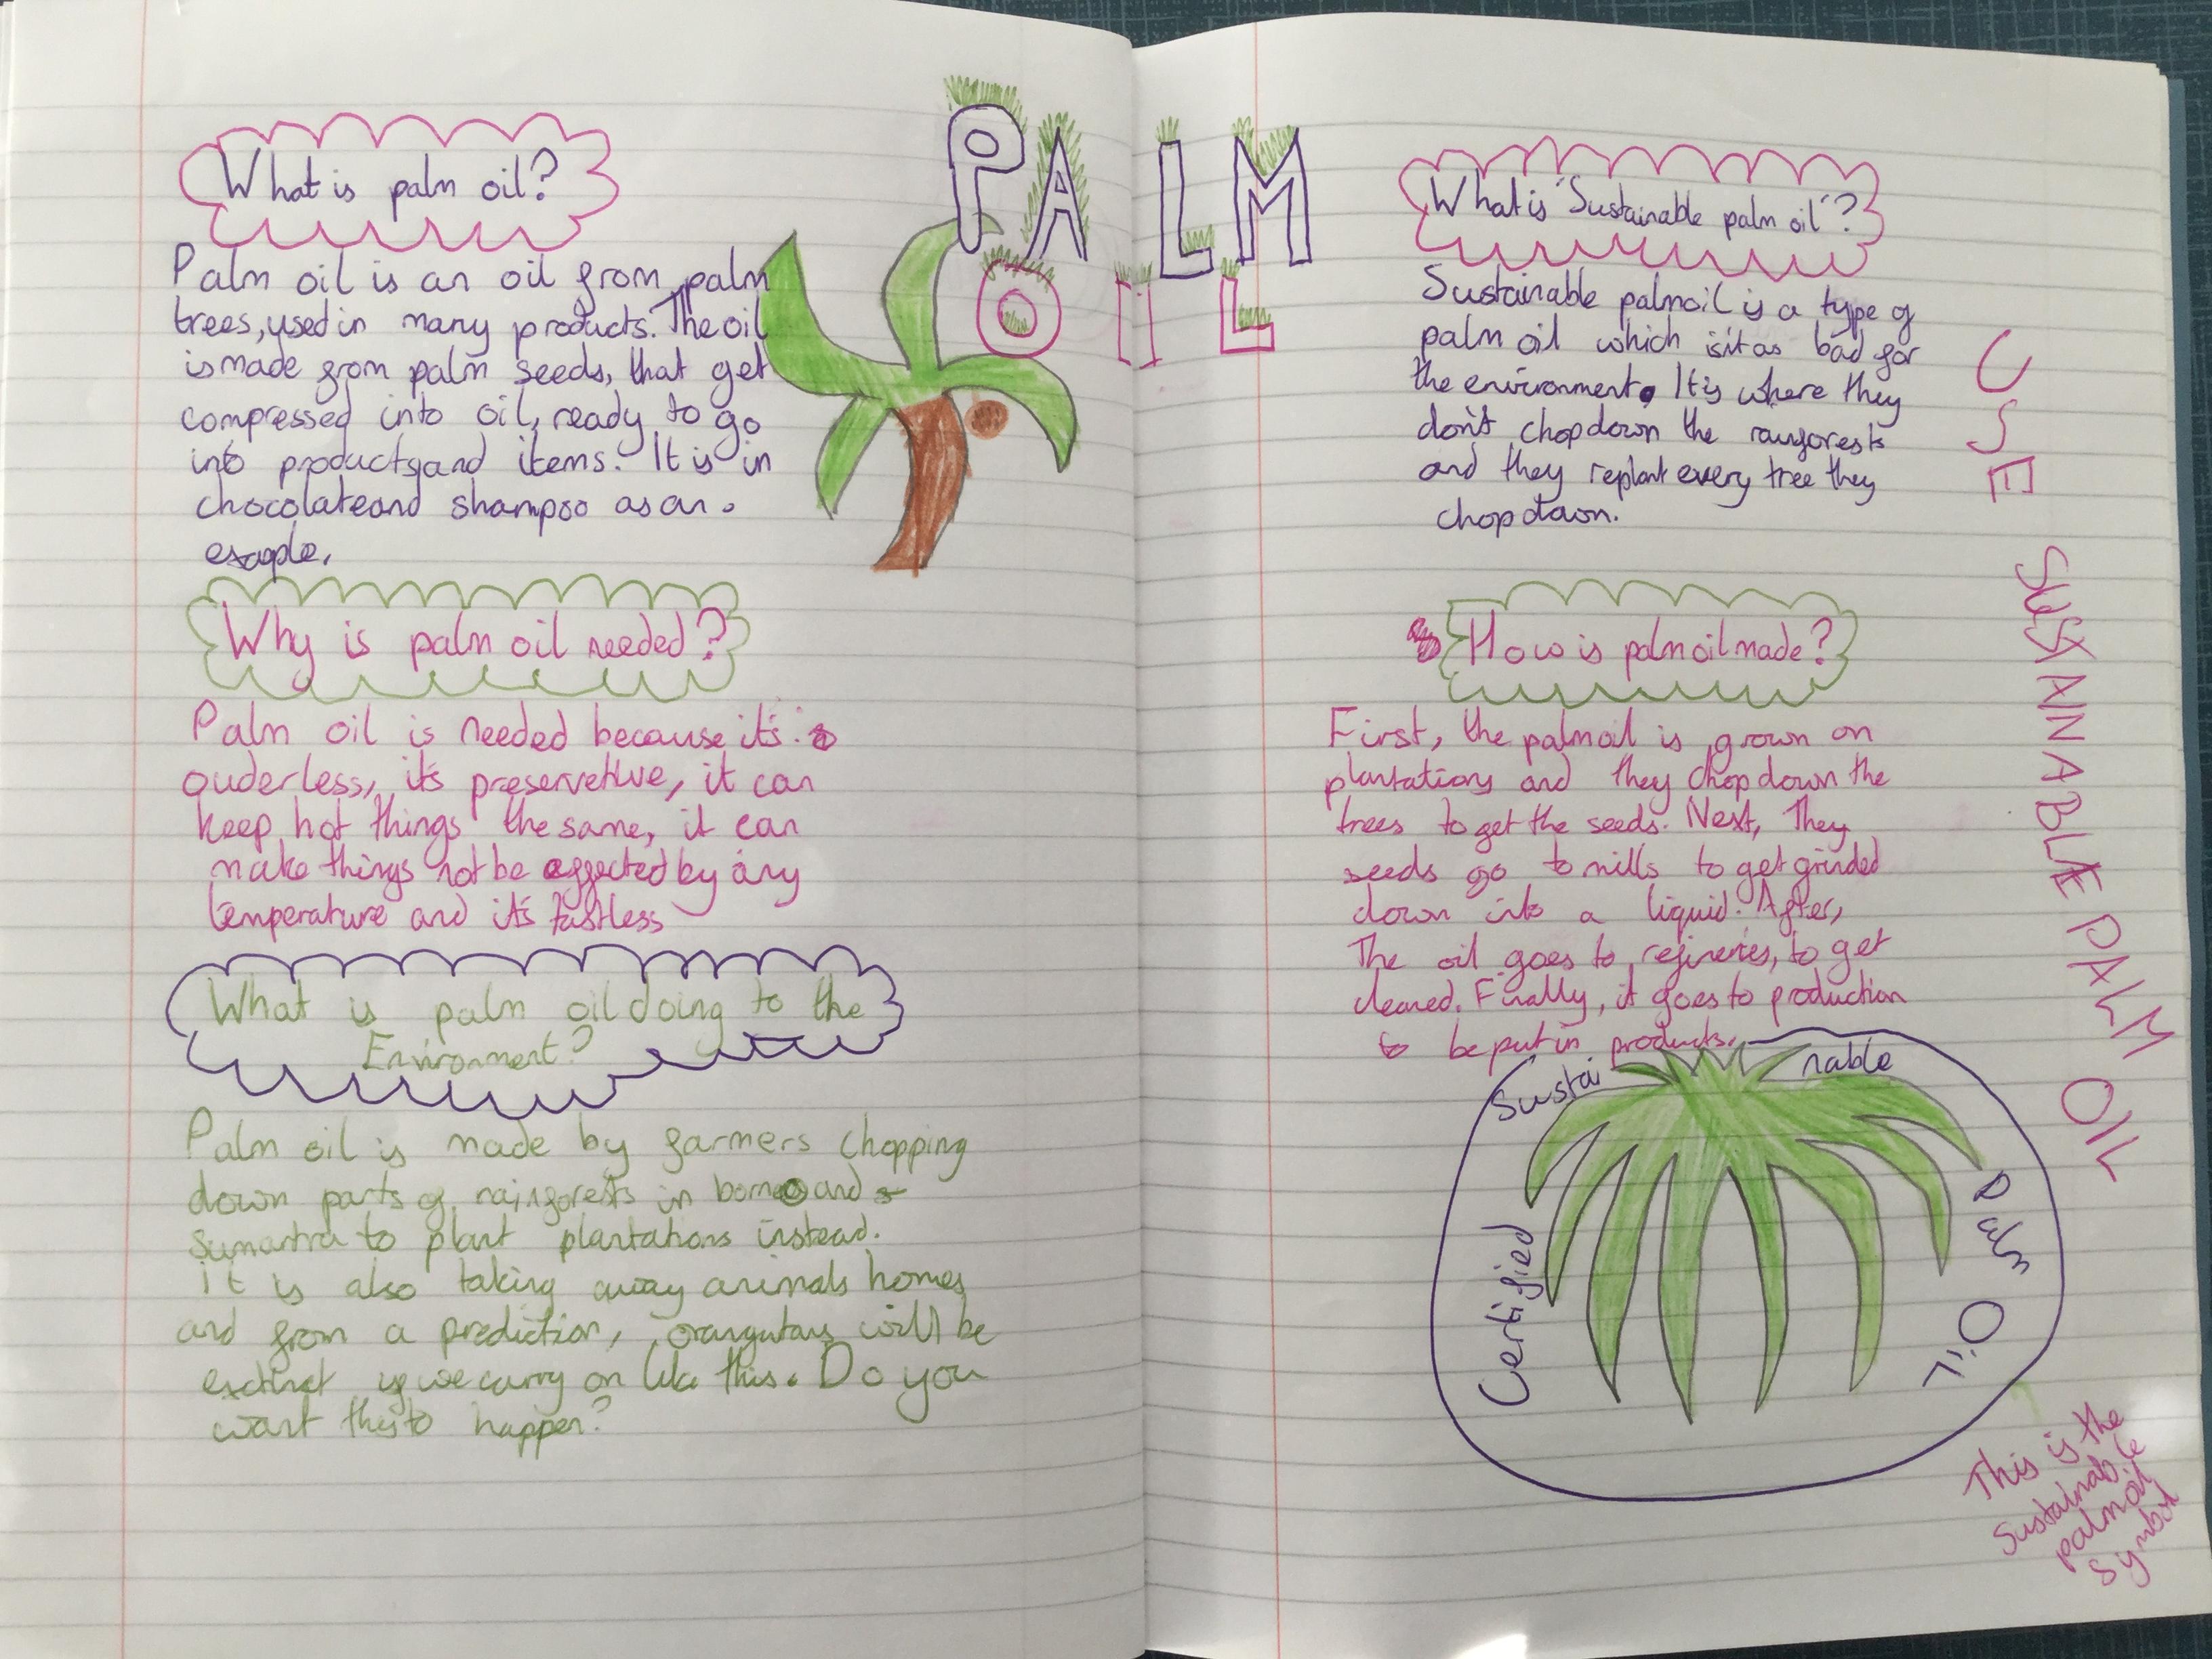 PALM
OIL
What is palm oil?
Palm oil is an oil from palm
trees, used in many products. The oil
is made from palm seeds, that get
compressed into oil, ready to go
into products and items. It is in
chocolate and shampoo as an
exaple.
Why is palm oil needed?
Palm oil is needed because it's
ouderless, it's preservetive, it can
keep hot things the same, it can
make things not be effected by any
temperature and it's tastless
What is palm oil doing to the
Environment?
Palm oil is made by farmers chopping
down parts of rainforests in borneo and
sumartra to plant plantations instead.
it is also taking away animals homes
and from a prediction, orangutans will be
exctinct if we carry on like this. Do you
want this to happen?
What is "Sustainable palm oil"?
Sustainable palm oil is a type of
palm oil which isn't as bad for
the environment. It is where they
don't chop down the rainforests
and they replant every tree they
chop down.
How is palm oil made?
First, the palm oil is grown on
plantations and they chop down the
trees to get the seeds. Next, They
seeds go to mills to get grinded
down into a liquid. After,
The oil goes to refineries, to get
cleaned. Finally, it goes to production
to be put in products.
USE SUSTANNABLE PALM OIL
Certified Sustainable Palm Oil
This is the
Sustainable
palm oil
Symbol